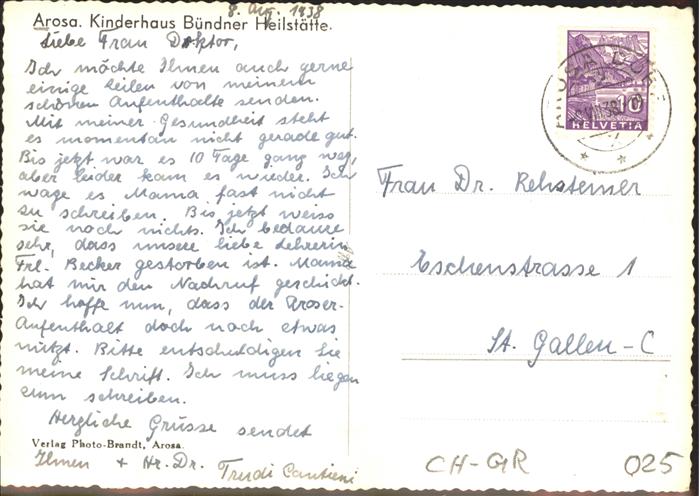 8. Aug. 1938
Arosa. Kinderhaus Bündner Heilstätte.
Liebe Frau Doktor,
Ich möchte Ihnen auch gerne
einige Zeilen von meinem
schönen Aufenthalte senden.
Mit meiner Gesundheit steht
es momentan nicht gerade gut.
Bis jetzt war es 10 Tage ganz weg,
aber leider kam es wieder. Ich
wage es Mama fast nicht
zu schreiben. Bis jetzt weiss
sie noch nichts. Ich bedaure
sehr, dass unsere liebe Lehrerin
Frl. Becker gestorben ist. Mama
hat mir den Nachruf geschickt.
Ich hoffe nun, dass der Aroser-
Aufenthalt doch noch etwas
nützt. Bitte entschuldigen Sie
meine Schrift. Ich muss liegen
zum schreiben.
Herzliche Grüsse sendet
Verlag Photo-Brandt, Arosa.
Ihnen + Hr. Dr. Trudi Cantieni
10
HELVETIA
AROSA
Frau Dr. Rehsteiner
Eschenstrasse 1
St. Gallen-C
CH-GR 025